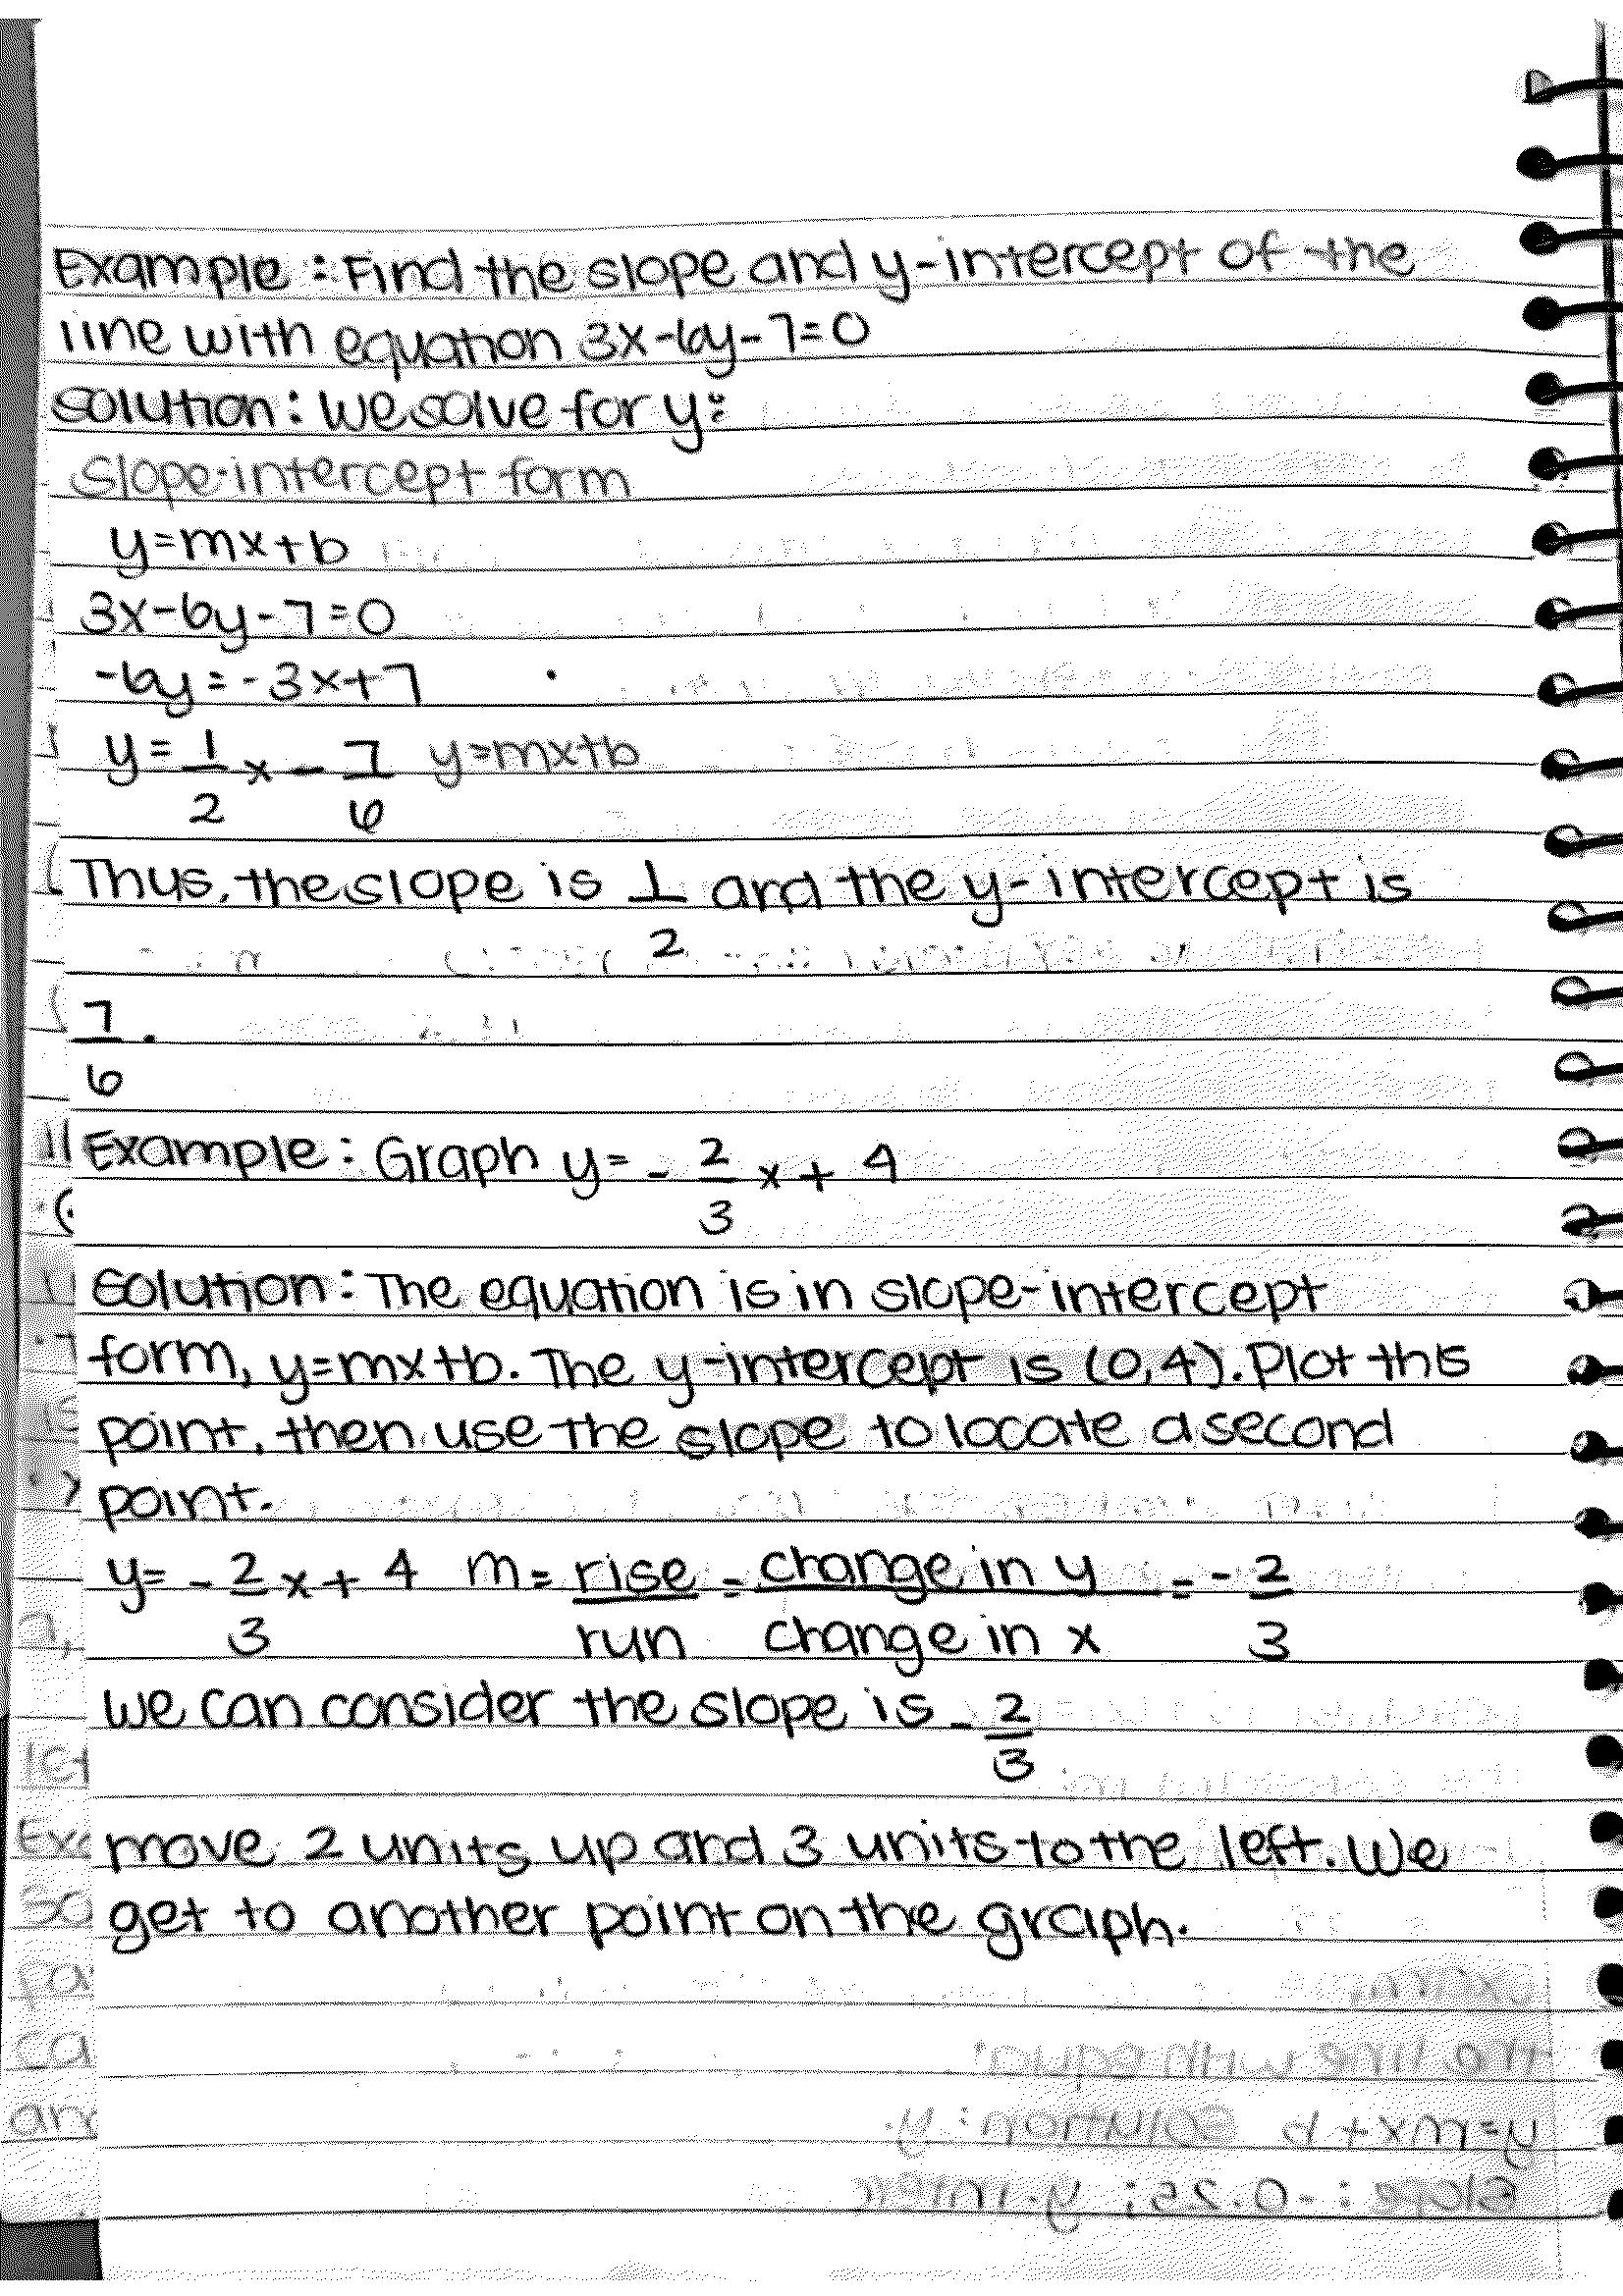 Example: Find the slope and y-intercept of the
line with equation 3x-6y-7=0
Solution: We solve for y:
Slope-intercept form
y=mx+b
3x-6y-7=0
-6y=-3x+7
y= 1/2 x - 7/6 y=mx+b
Thus, the slope is 1/2 and the y-intercept is
7/6.
Example: Graph y= - 2/3 x + 4
Solution: The equation is in slope-intercept
form, y=mx+b. The y-intercept is (0,4). Plot this
point, then use the slope to locate a second
point.
y= - 2/3 x + 4 m = rise/run = change in y/change in x = - 2/3
We can consider the slope is - 2/3
move 2 units up and 3 units to the left. We
get to another point on the graph.